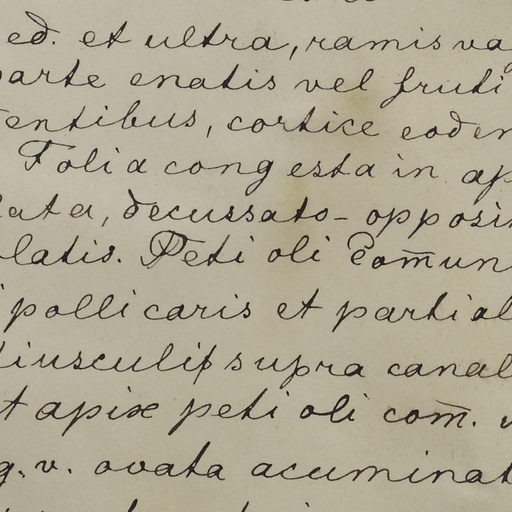 ed. et ultra, ramis va
parte enatis vel fruti
entibus, cortice eoder
Folia congesta in ap
lata, decussato-opposi
latis. Petioli Com̄un
pollicaris et partial
iusculis supra canal
t apice petioli com̄.
g. v. ovata acuminat